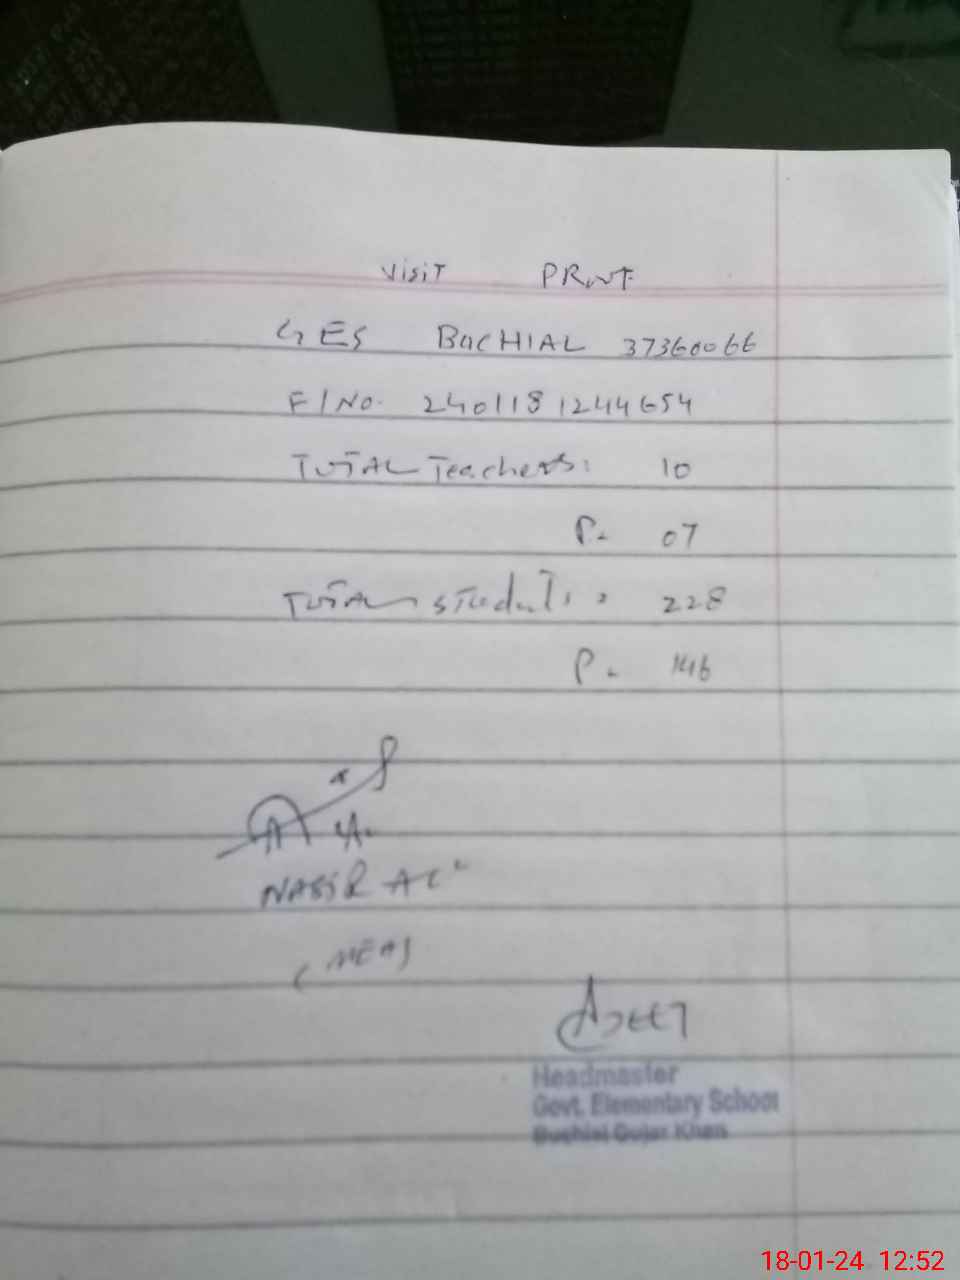 Visit PROOF
GES BUCHIAL 37360066
F/NO. 240118 1244654
TOTAL Teachers: 10
P. 07
TOTAL students: 228
P. 146
NASIR
(MEA)
Headmaster
Govt. Elementary School
Buchial Gujar Khan
18-01-24 12:52